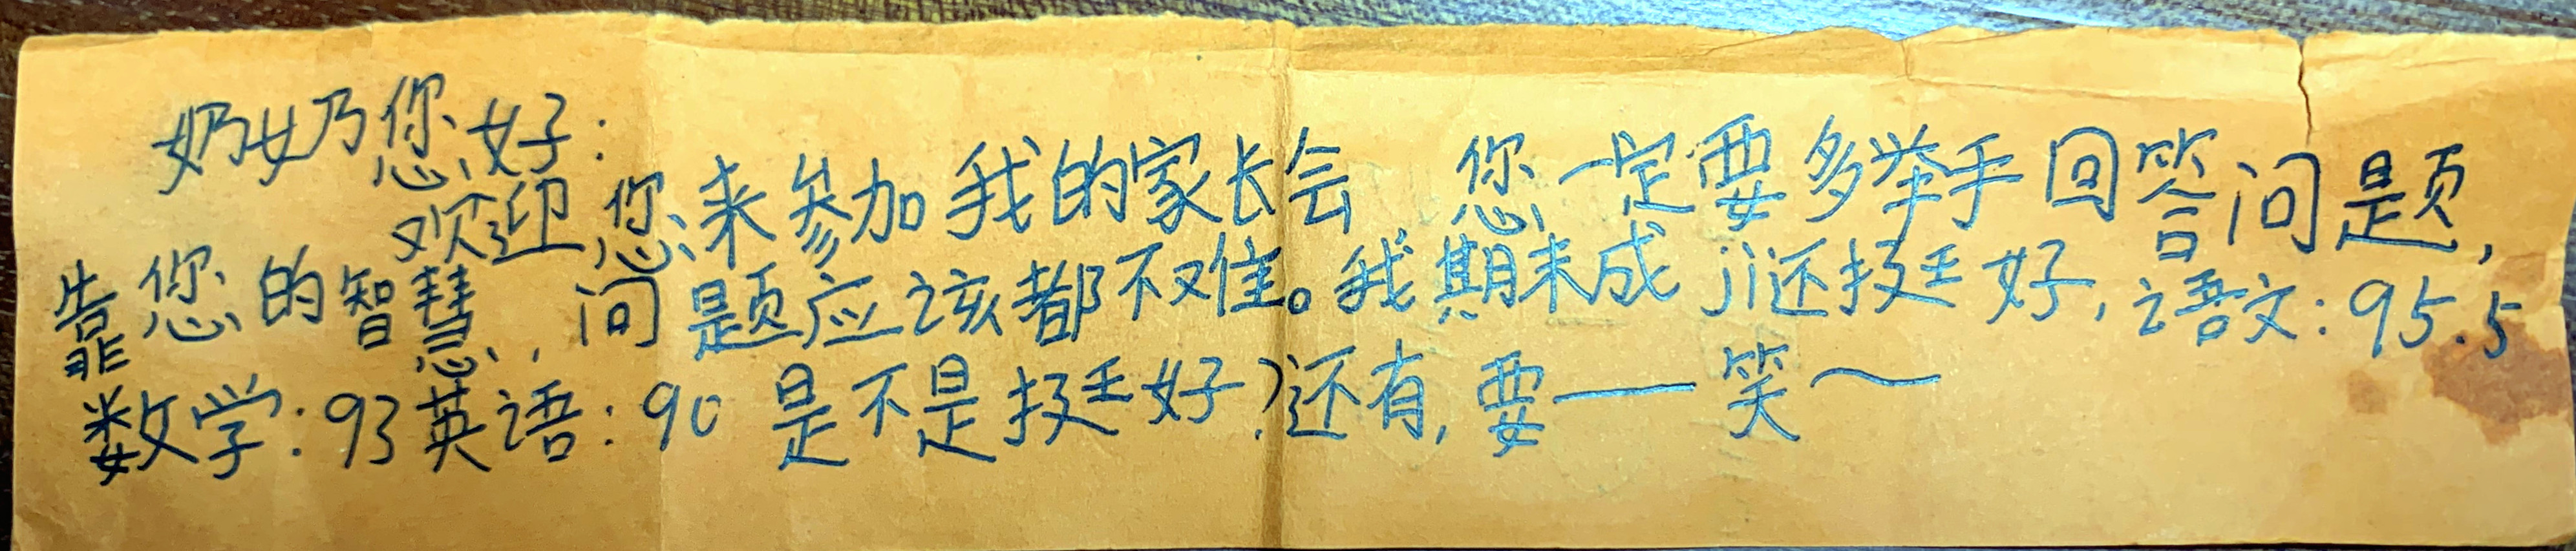 奶奶您好:
欢迎您来参加我的家长会 您一定要多举手回答问题,
靠您的智慧,问题应该都不难。我期末成jì还挺好,语文:95.5
数学:93英语:90 是不是挺好?还有,要——笑～